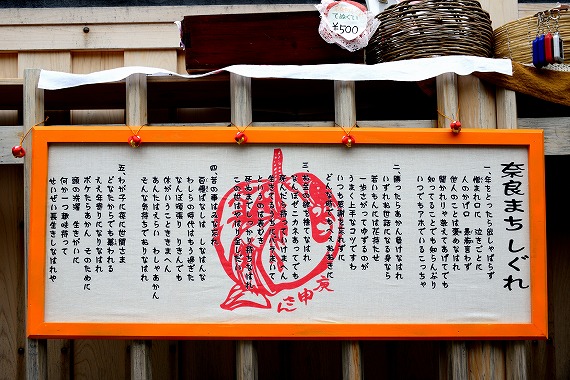 てぬぐい
¥500
奈良まちしぐれ
一、年をとったら出しゃばらず
憎まれ口に 泣きごとに
人のかげ口 悪態言わず
他人のことは褒めなはれ
聞かれりゃ教えてあげてでも
知ってることでも知らんふり
いつでもアホでいるこっちゃ
二、勝ったらあかん負けなはれ
いずれお世話になる身なら
若いもんには花持たせ
一歩さがってゆずるのが
上手なコツですわ
いつも感謝を忘れずに
どんな時でもへえおおきに
三、お金の欲を捨てなはれ
なんぼゼニカネあってても
死んだら持っていけまへん
生きてるうちにバラまいて
四、昔の事はみな忘れ
自慢ばなしは しなはんな
わしらの時代はもう過ぎた
なんぼ頑張り りきんでも
体がいうことききまへん
あんたはえらい わしゃあかん
そんな気持ちでおりなはれ
五、わが子に孫に世間さま
どなたからでも慕われる
ええ年寄りになりなはれ
ボケたらあかん そのために
頭の洗濯 生きがいに
何か一つ趣味持って
せいぜい長生きしなはれや
庚申さん